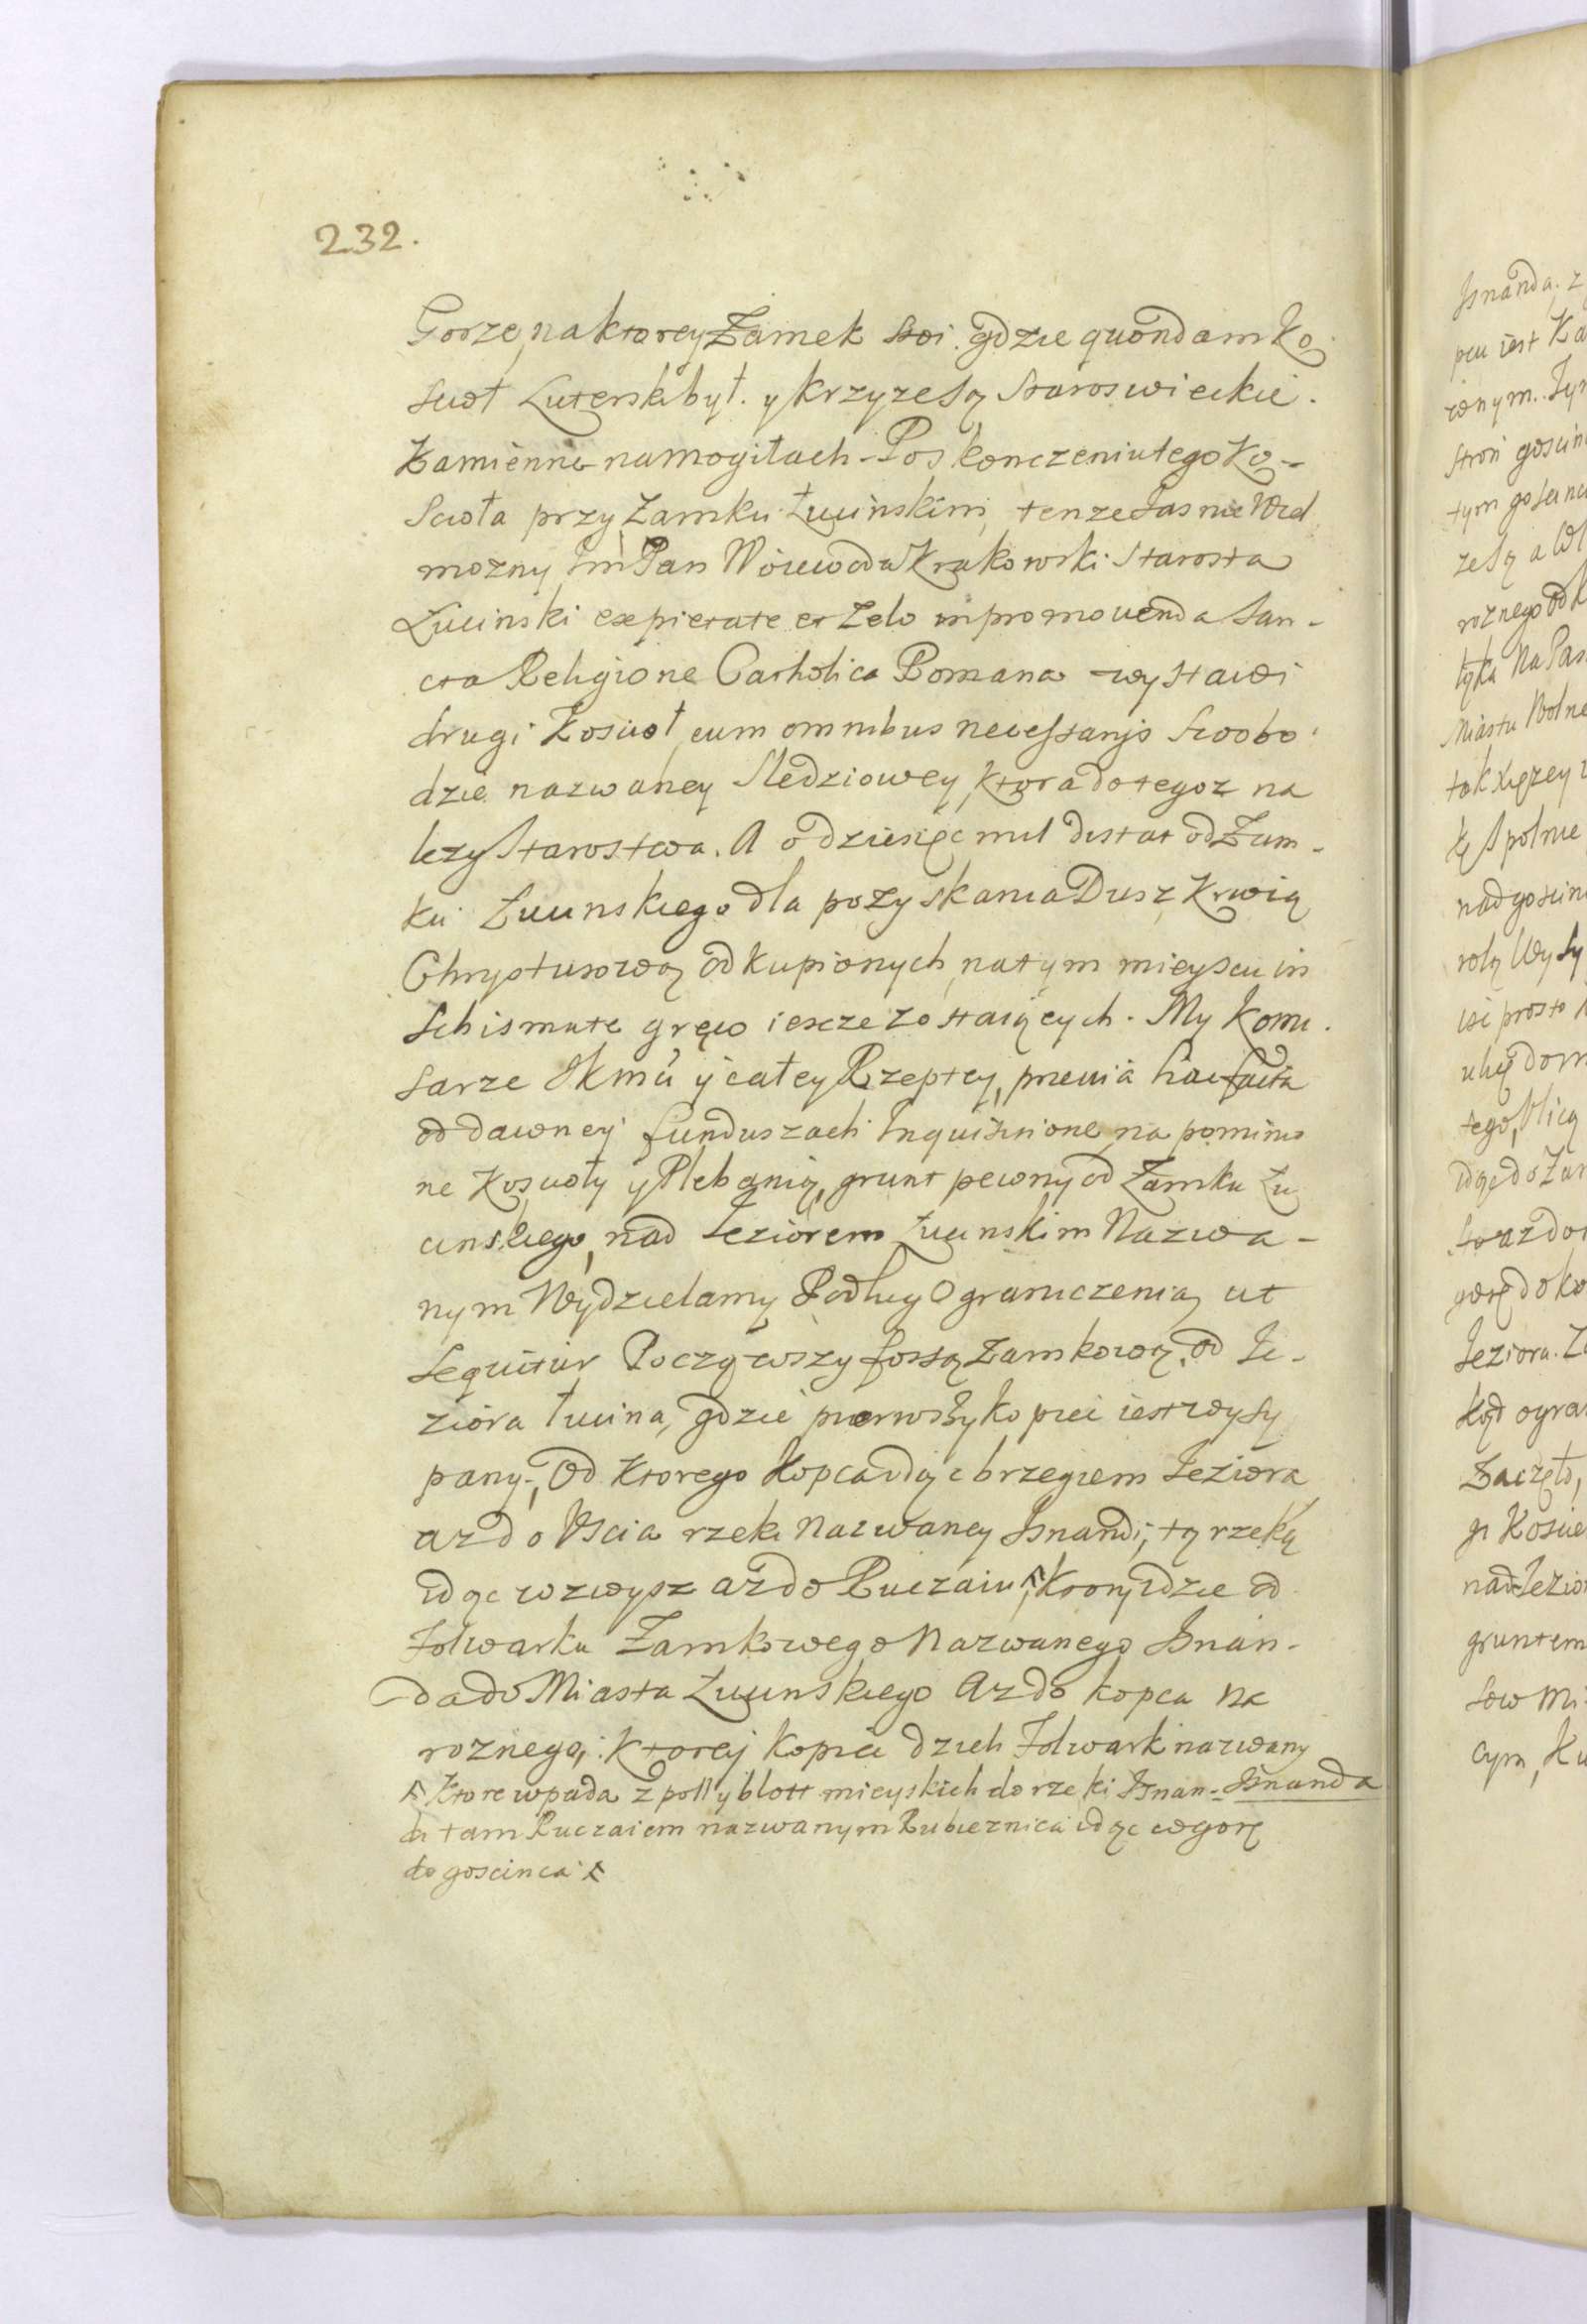 232.
Gorze, na ktorey Zamek stoi. gdzie quondam Ko
scioł Luterski był. y krzyze są staroswieckie.
Kamienne na mogiłach - Po skonczeniu tego Ko-
scioła przy Zamku Łucinskim, tenze Jasnie Wiel
mozny Jm Pan Woiewoda Krakowski Starosta
Lucinski ex pietate et zelo in promovenda San-
cta Religione Catholica Romana wystawi
drugi Koscioł, cum omnibus necessarijs Swobo
dzie nazwaney Sledziowey, ktora do tegoz na
lezy Starostwa. A o dziesięc mil distat od Zam-
ku Lucinskiego dla pozyskania Dusz Krwią
Chrystusową odkupionych, na tym mieyscu in
Schismate gręco iescze zostaiących. My Komi.
sarze JKMci y całey Rzeptey, previa
od dawney funduszach Inquisitione, na pominio
ne Koscioły y Plebanią, grunt pewny od Zamku Lu
cinskiego, nad Jeziorem Łucinskim Nazwa-
nym Wydzielamy Podług Ograniczenia, ut
sequitur Począwszy fossą Zamkową, od Je-
ziora Łucina, gdzie pierwszy kopiec iest wysy
pany, Od ktorego Kopca idąc brzegiem Jeziora
az do Uscia rzeki Nazwaney Isnandi, tą rzeką
idąc wzwysz az do Ruczaiu, Ktory idzie od
Folwarku Zamkowego Nazwanego Isnan-
da do Miasta Lucinskiego az do kopca na
roznego, Ktory kopiec dzieli Folwark nazwany
Ktore wpada z pośły blott mieyskich do rzeki Isnan- Isnanda
da tam Ruczaiem nazwanym Rubieznica idąc wgorę
do goscinca

Isnanda, z
pcu iest Ka
stron goscin
tym goscinc
ze są a
roznego od k
tyka na Pas
Miastu Wolne
tak Xięzey
kę spolnie
nad goscin
rolą Wysy
isc prosto
ulicę dom
tego, Ulicą
idąc do Zam
az do
gorę do ko
Jeziora. Z
kąd ogra
Zaczęło,
gi Koscie
nad Jezior
gruntem
sow Mi
cym, Ku